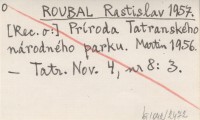 o
ROUBAL Rastislav 1957.
[Rec. o:] Príroda Tatranského
národného parku. Martin 1956.
— Tatr. Nov. 4, nr 8: 3.